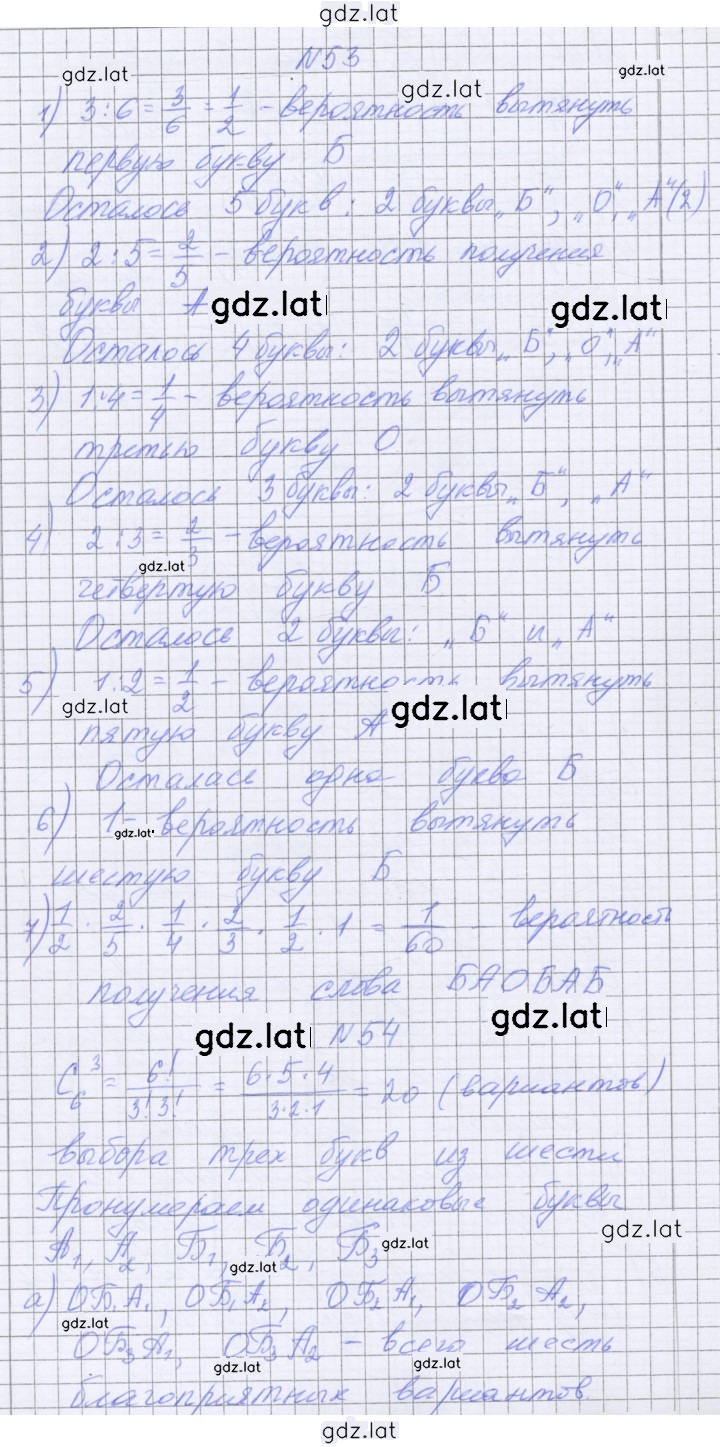 gdz.lat
№53
gdz.lat gdz.lat gdz.lat
1) 3:6 = 3/6 = 1/2 - вероятность вытянуть
первую букву Б
Осталось 5 букв: 2 буквы „Б“, „О“, „А“(2)
2) 2:5 = 2/5 - вероятность получения
буквы А gdz.lat gdz.lat
Осталось 4 буквы: 2 буквы „Б“, „О“, „А“
3) 1:4 = 1/4 - вероятность вытянуть
третью букву О
Осталось 3 буквы: 2 буквы „Б“, „А“
4) 2:3 = 2/3 - вероятность вытянуть
gdz.lat
четвертую букву Б
Осталось 2 буквы: „Б“ и „А“
5) 1:2 = 1/2 - вероятность вытянуть
gdz.lat gdz.lat
пятую букву А
Осталась одна буква Б
6) 1 - вероятность вытянуть
gdz.lat
шестую букву Б
7) 1/2 · 2/5 · 1/4 · 2/3 · 1/2 · 1 = 1/60 - вероятность
получения слова БАОБАБ
gdz.lat №54 gdz.lat
C₆³ = 6!/3!3! = 6·5·4/3·2·1 = 20 (вариантов)
выбора трех букв из шести
Пронумераем одинаковые буквы
gdz.lat
А₁, А₂, Б₁, Б₂, Б₃ gdz.lat
gdz.lat
а) ОБ₁А₁, ОБ₁А₂, ОБ₂А₁, ОБ₂А₂,
gdz.lat
ОБ₃А₁, ОБ₃А₂ - всего шесть
gdz.lat gdz.lat
благоприятных вариантов.
gdz.lat